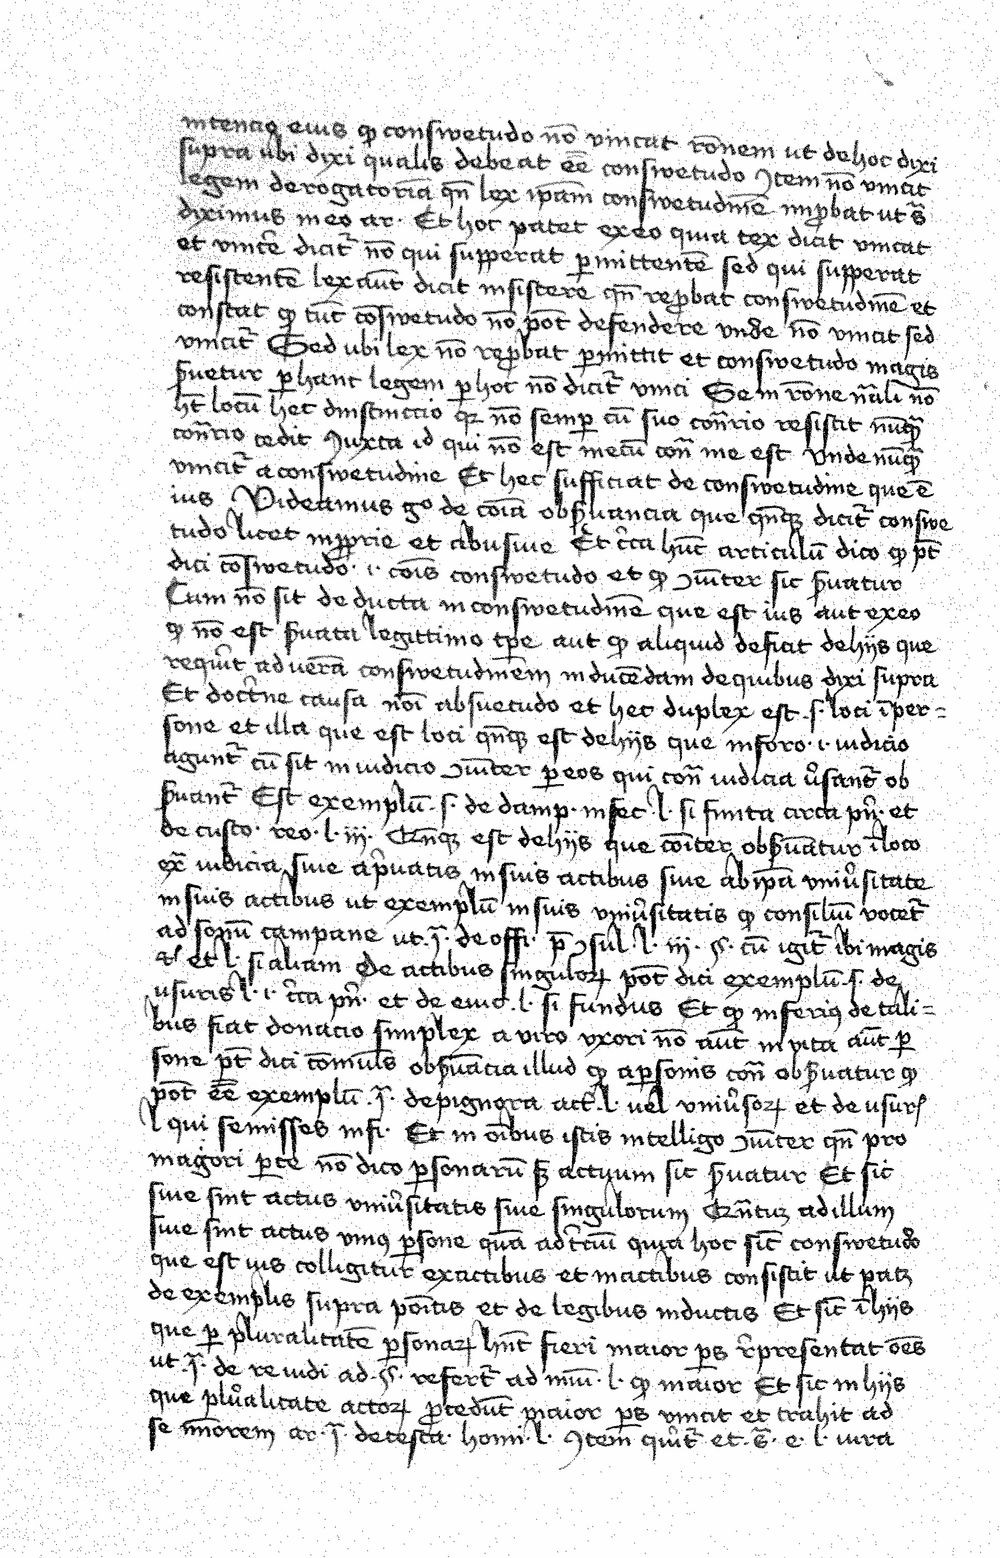 intencio eius ꝙ conswetudo nō vincat rōnem ut de hoc dixi
supra ubi dixi qualis debeat eē conswetudo Item nō vincit
legem derogatoriā qn̄ lex ipām conswetudinē īprobat ut s̄
diximus in eo ar. Et hoc patet ex eo quia lex dicit vincat
et vincere dicit̄ nō qui supperat ꝑmittentē sed qui supperat
resistentē lex aūt dicit insistere qn̄ reprobat conswetudinē et
constat ꝙ tūc cōswetudo nō pōt defendere vnde nō vincit sed
vincit̄ Sed ubi lex nō reprobat ꝑmittit et conswetudo magis
ẜuetur ꝑ hanc legem ꝑ hoc nō dicit̄ vinci Se in rōne nāli nō
ht̄ locū hec distinctio qꝛ nō semꝑ cū suo cōn̄rio resistit nūqꝫ
cōn̄rio cedit Iuxta id qui nō est mecū con̄ me est Vnde nūqꝫ
vincit̄ a conswetudine Et hec sufficiat de conswetudine que ē
ius Videamus gͦ de cōiā obẜuancia que qn̄qꝫ dicit̄ conswe
tudo licet īproprie et abusiue Et cͥca hūc articulū dico ꝙ pt̄
dici cōswetudo .i. cōis conswetudo et ꝙ ɔiter sic ẜuatur
Cum nō sit deducta in conswetudinē que est ius aut ex eo
ꝙ nō est ẜuata legittimo tꝑe aut ꝙ aliquid deficit de hijs que
requirūt ad uerā conswetudinem inducēdam de quibus dixi supra
Et doctͥne causa noī absuetudo et hec duplex est .s. loci ī per-
sone et illa que est loci qn̄qꝫ est de hijs que in foro .i. iudicio
agunt̄ cū sit in iudicio ɔiter ꝑ eos qui con̄ iudicia ūsant̄ ob
ẜuant̄ Est exemplū .s. de damp. infec. l. si finita circa pn̄. et
de custo. reo. l. iij. Qn̄qꝫ est de hijs que cōiter obẜuātur ī loco
exͣ iudicia siue a pͥuatis in suis actibus siue ab ipā vniūsitate
in suis actibus ut exemplū in suis vniūsitatis ꝙ consiliū vocet̄
ad sonū campane ut .j̄. de offi. p̄ ɔsul. l. iij. §. cū igit̄ ibi magis
etͨ et l. si aliam De actibus singuloꝝ pōt dici exemplū .s. de
usuris l. i. cͥca pn̄. et de euic. l. si fundus Et ꝙ inferiꝰ de tali-
bus fiat donacio simplex a viro vxori nō aūt in vita aūt ꝑ
sone pt̄ dici cōmūis obẜuācia illud ꝙ a ꝑsonis con̄ obẜuatur ꝙ
pōt eē exemplū .j̄. de pignora act. l. uel vniūsoꝝ et de usurꝭ
l qui semisses in fi. Et in oībus istis intelligo ɔiter qn̄ pro
magiori ꝑte nō dico ꝑsonarū sꝫ actuum sic ẜuatur Et sic
siue sint actus vniūsitatis siue singulorum Qn̄tuꝫ ad illum
siue sint actus vniꝰ ꝑsone quā ad tͨciū quia hoc sic̄ conswetudo
que est ius colligitur ex actibus et in actibus consistit ut patꝫ
de exemplis supra poītis et de legibus inductis Et sic̄ ī hijs
que ꝑ pluralitatē ꝑsonaꝝ hn̄t fieri maior ꝑs rͥpresentat oēs
ut .j̄. de re iudi ad. §. refert̄ ad mūi. l. ꝙ maior Et sic in hijs
que plūalitate actoꝝ ꝓcedūt maior ꝑs vincit et trahit ad
se mīorem ar. j̄. de testa. homi. l. Item quirit̄ et .s̄. e. l. iura